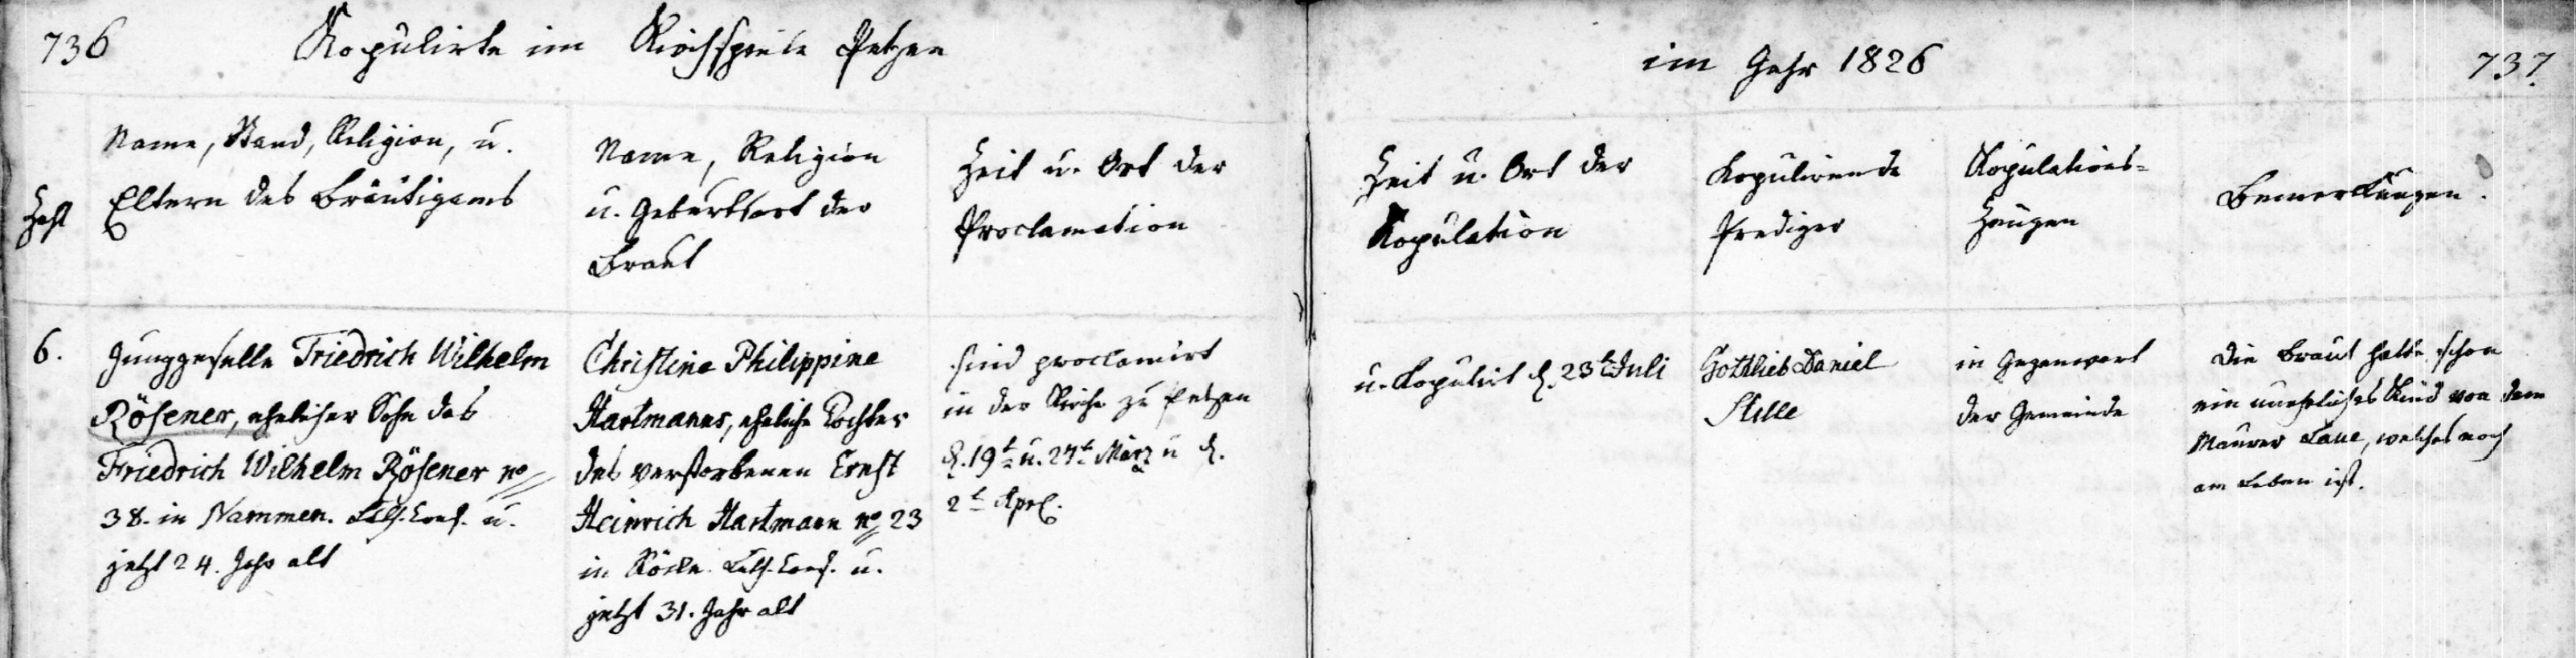 736 Kopulirte im Kirchspiele Petzen
im Jahr 1826 737.
Zahl
Name, Stand, Religion, u.
Eltern des Bräutigams
Name, Religion
u. Geburtsort der
Braut
Zeit u. Ort der
Proclamation
Zeit u. Ort der
Kopulation
Kopulirende
Prediger
Kopulations-
Zeugen
Bemerkungen.
6.
Junggeselle Friedrich Wilhelm
Rösener, ehelicher Sohn des
Friedrich Wilhelm Rösener no
38. in Nammen. Luth. Conf. u.
jetzt 24. Jahr alt
Christine Philippine
Hartmanns, eheliche Tochter
des verstorbenen Ernst
Heinrich Hartmann no 23
in Röcke. Luth. Conf. u.
jetzt 31. Jahr alt
sind proclamirt
in der Kirche zu Petzen
d. 19t u. 27t März u d.
2t Apr.
u. kopulirt d. 23t Juli
Gottlieb Daniel
Stille
in Gegenwart
der Gemeinde
Die Braut hatte schon
ein uneheliches Kind von dem
Maurer Laue, welches noch
am Leben ist.